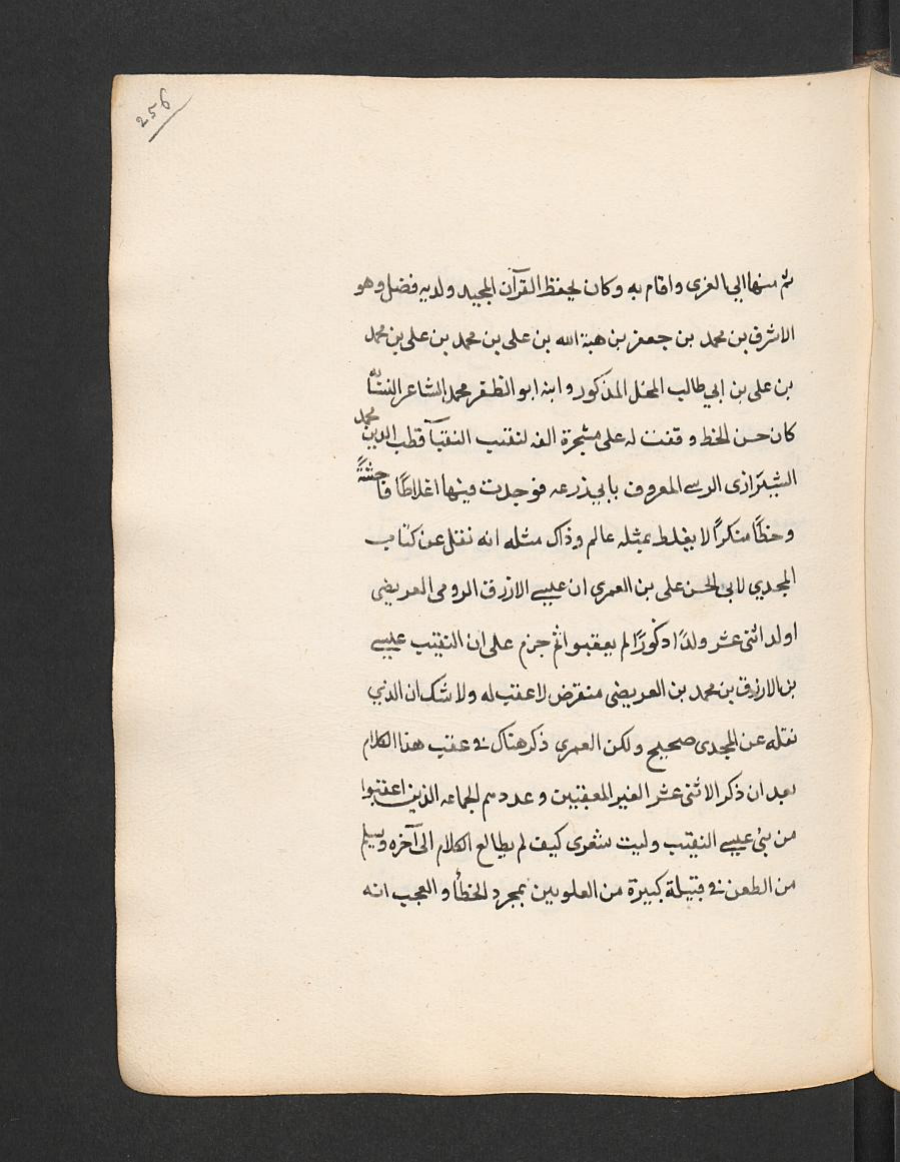 256
ثم منها الي الغرى واقام به وكان يحفظ القرآن المجيد ولديه فضل وهو
الاشرف بن محمد بن جعفر بن هبة الله بن على بن محمد بن على بن محمد
بن على بن ابي طالب المحل المذكور وابنه ابو المظفر محمد الشاعر النسابه
كان حسن الخط وقفت له على مشجرة الفه لنقيب النقبآ قطب الدين محمد
الشيرازى الرسى المعروف بابي زرعه فوجدت فيها اغلاطًا فاحشةً
وخطًا منكرًا لا يغلط بمثله عالم وذاك مثله انه نقل عن كتاب
المجدي لابى الحسن على بن العمري ان عيسى الازرق الرومى العريضى
اولد اثنى عشر ولدًا ذكورًا لم يعقبوا ثم جزم على ان النقيب عيسى
بن الازرق بن محمد بن العريضى منقرض لا عقب له ولا شك ان الذي
نقله عن المجدى صحيح ولكن العمرى ذكر هناك فى عقب هذا الكلام
بعد ان ذكر الاثنى عشر الغير المعقبين وعددهم الجماعه الذين اعقبوا
من بنى عيسى النقيب وليت شعرى كيف لم يطالع الكلام الى آخره ويسلم
من الطعن فى قبيلة كبيرة من العلويين بمجرد الخطأ والعجب انه